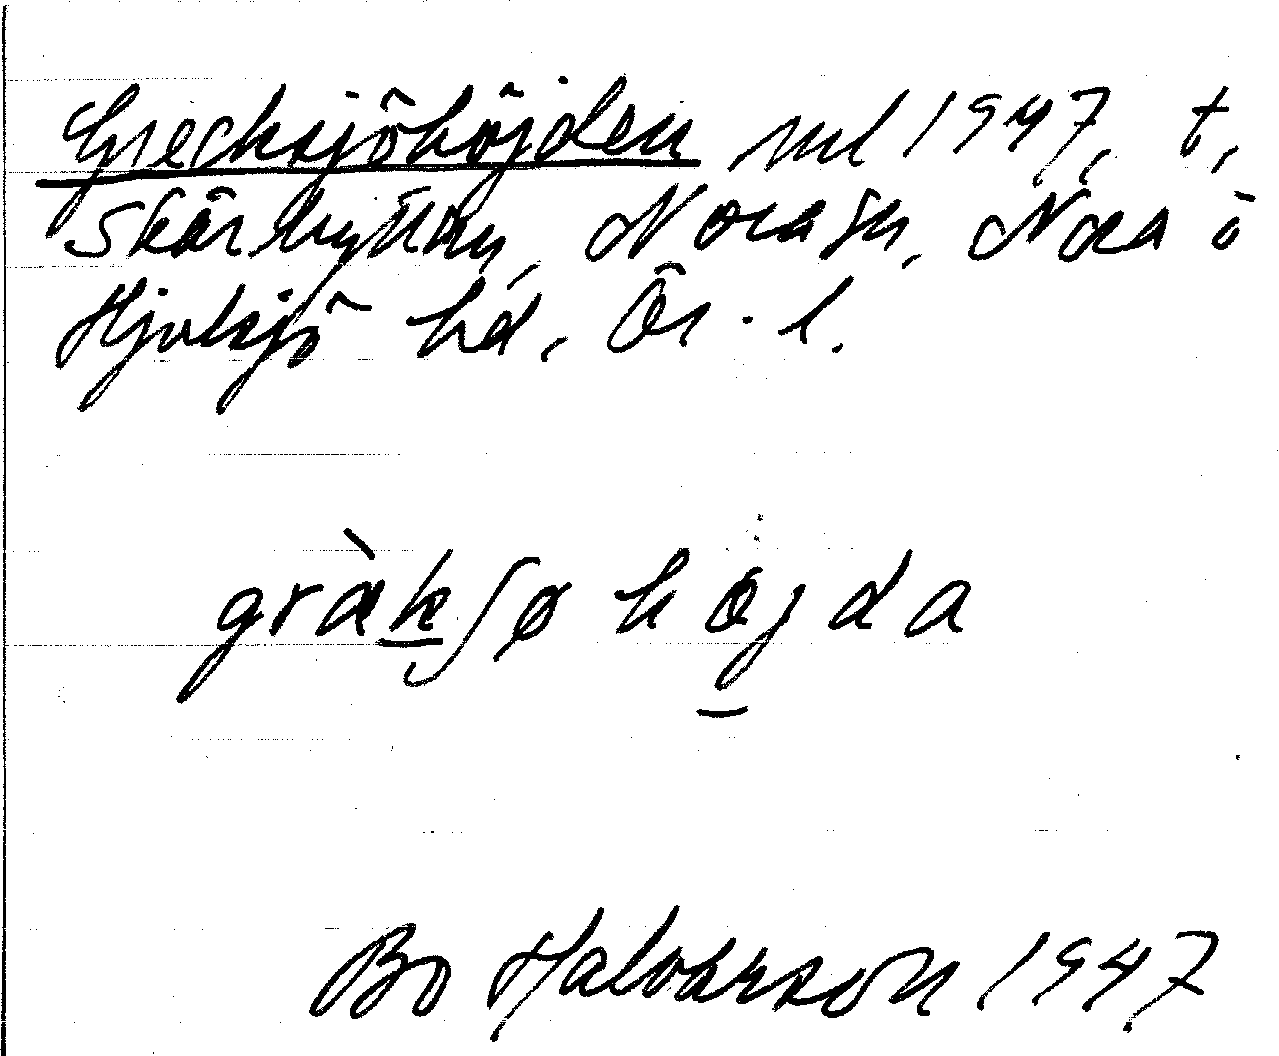 Grecksjöhöjden nul 1947, t,
Skärhyttan, Nora sn, Nora o
Hjulsjö hd, Ör. l.
gräkʃø højda
Bo Halvarsson 1947